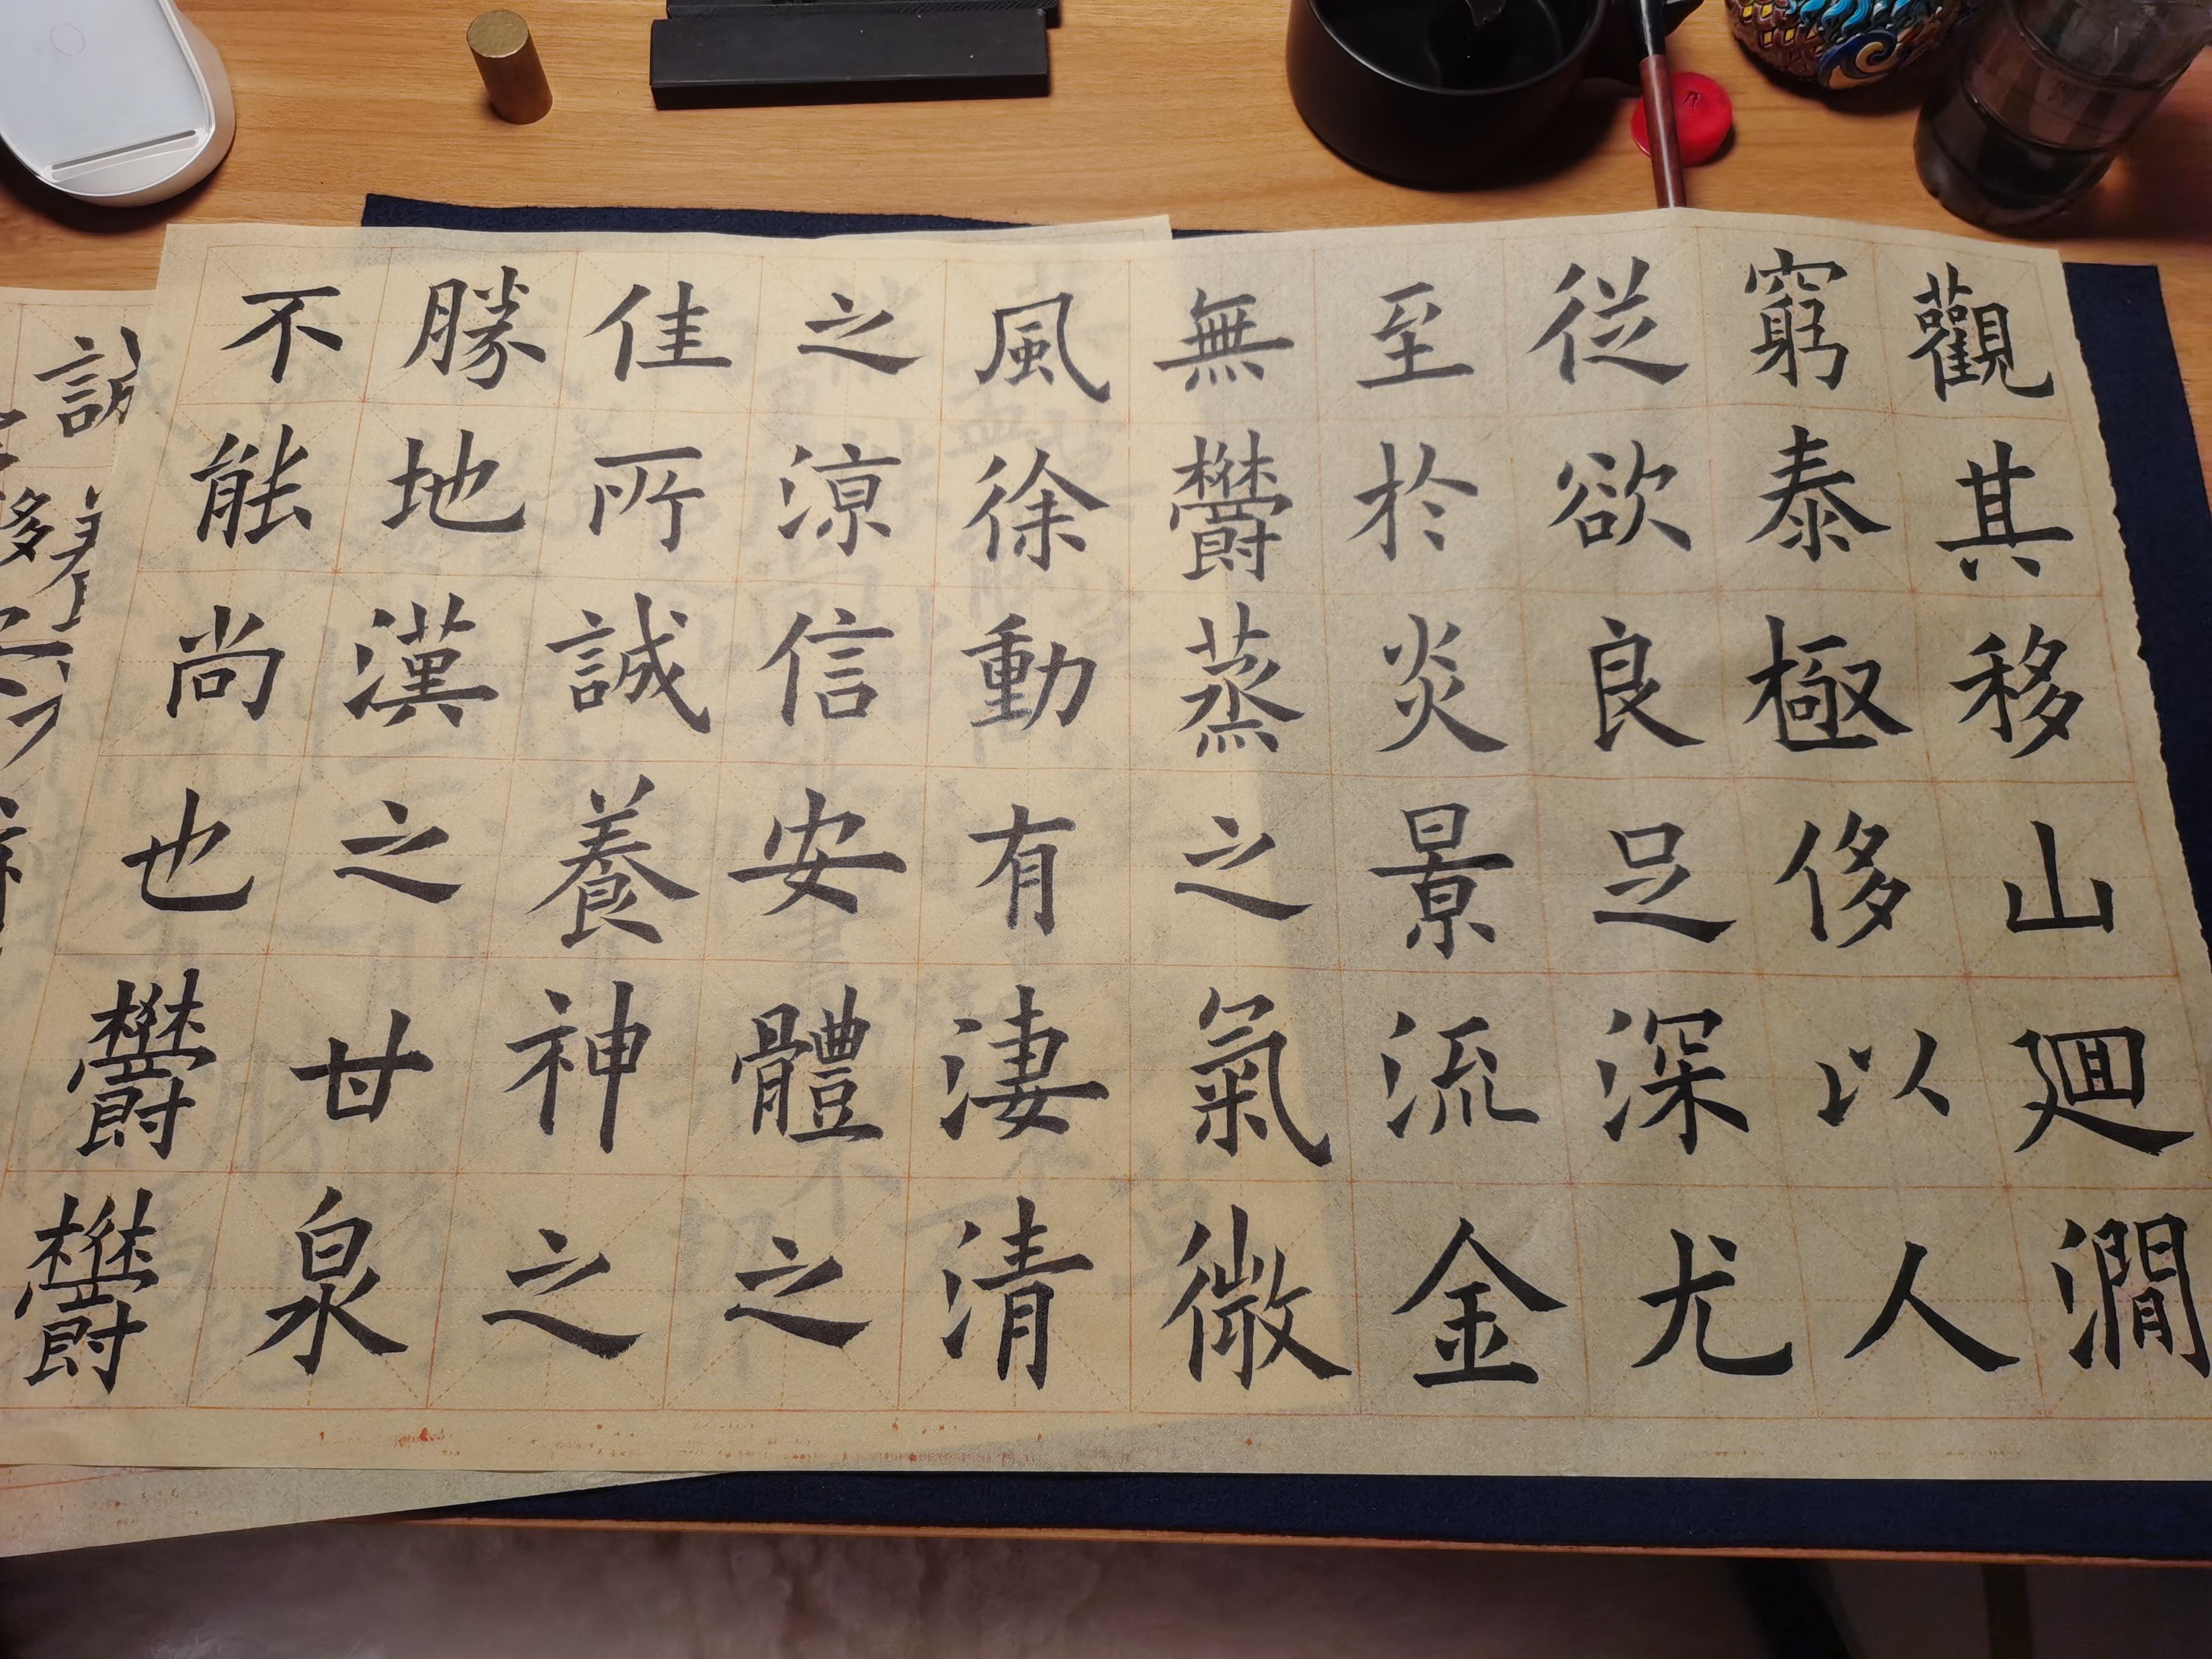 觀其移山廻澗
窮泰極侈以人
従欲良足深尤
至於炎景流金
無鬱蒸之氣微
風徐動有淒清
之涼信安體之
佳所誠養神之
勝地漢之甘泉
不能尚也鬱鬱
誠
侈